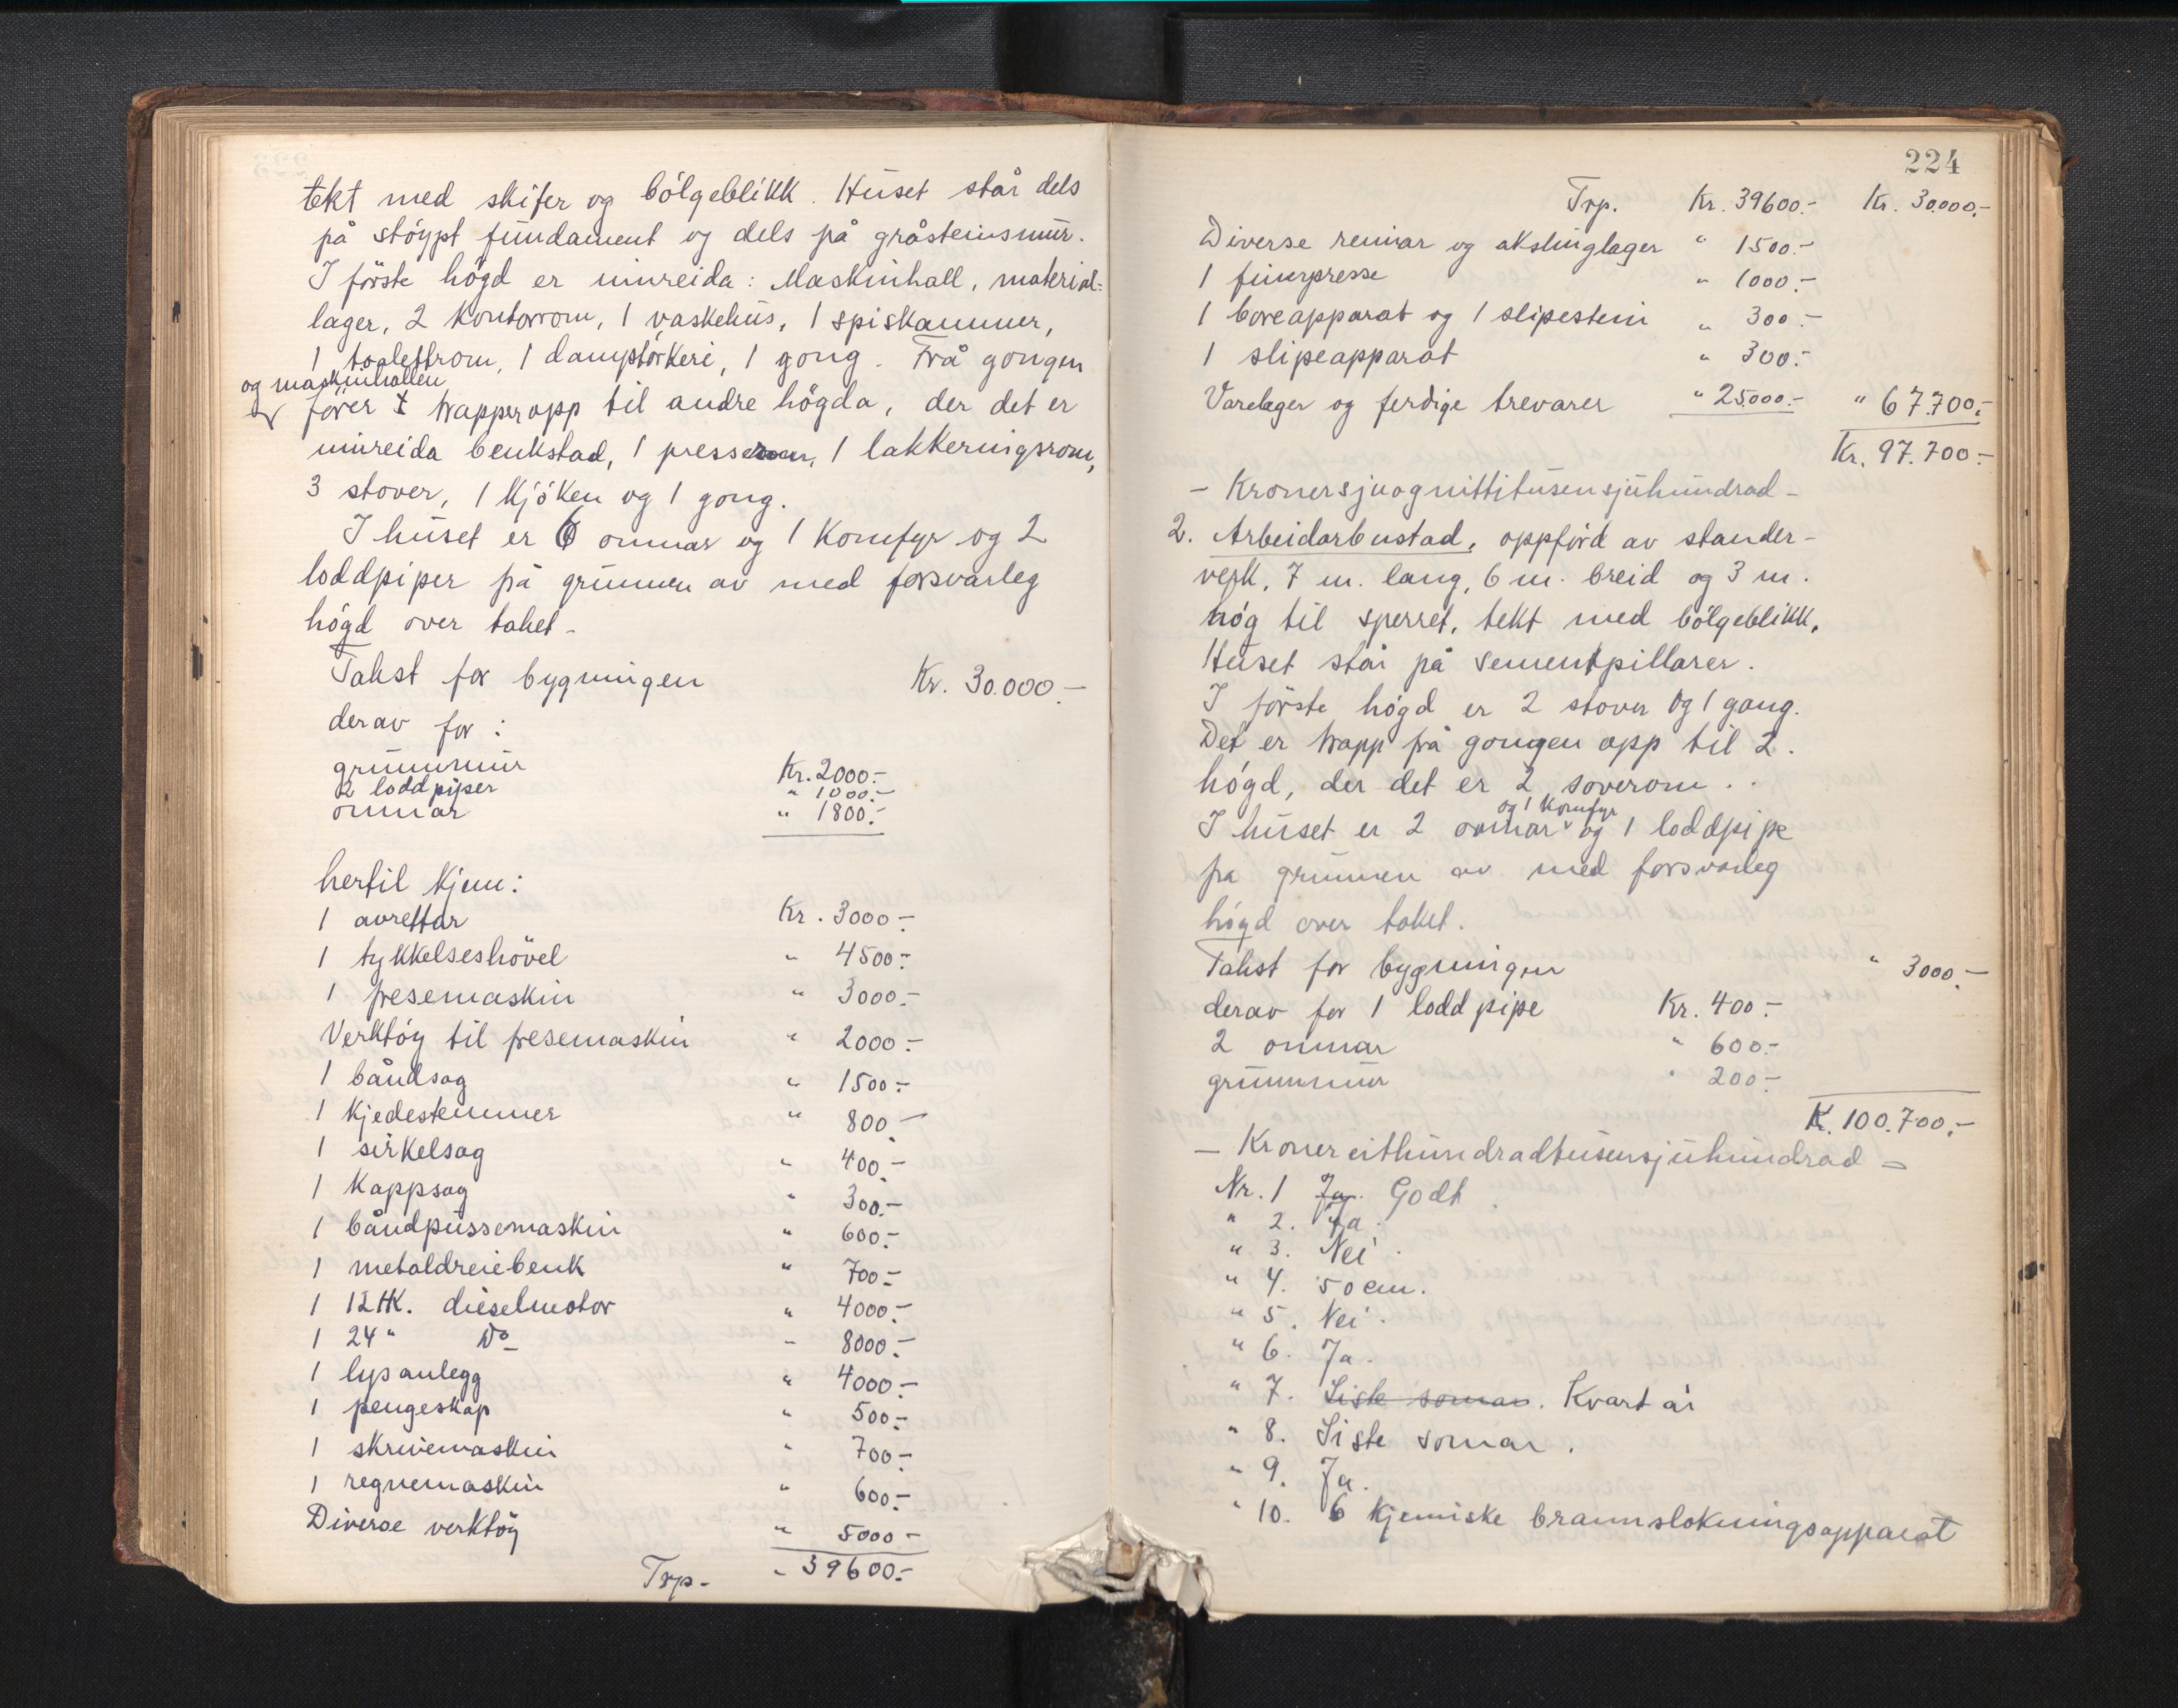 tekt med skifer og bölgeblikk. Huset står dels
på stöypt fundament og dels på gråsteinsmur.
I förste högd er innreida: Maskinhall, material-
lager, 2 kontorrom, 1 vaskehus, 1 spiskammer,
1 toalettrom, 1 damptörkeri, 1 gong. Frå gongen
og maskinhallen
förer trapper opp til andre högda, der det er
innreida benkstad, 1 presserom, 1 lakkeringsrom,
3 stover, 1 kjöken og 1 gong.
I huset er 6 omnar og 1 komfyr og 2
loddpiper på grunnen av med forsvarleg
högd over taket.
Takst for bygningen Kr. 30.000.-
derav for:
grunnmur Kr. 2000.-
2 loddpiper " 1000.-
omnar " 1800.-
hertil kjem:
1 avrettar Kr. 3000.-
1 tykkelseshövel " 4500.-
1 fresemaskin " 3000.-
Verktöy til fresemaskin " 2000.-
1 båndsag " 1500.-
1 kjedestemmer " 800.-
1 sirkelsag " 400.-
1 kappsag " 300.-
1 båndpussemaskin " 600.-
1 metaldreiebenk " 700.-
1 12 HK. dieselmotor " 4000.-
1 24 " Do " 8000.-
1 lysanlegg " 4000.-
1 pengeskap " 500.-
1 skrivemaskin " 700.-
1 regnemaskin " 600.-
Diverse verktöy " 5000.-
Trp. " 39600.-
224
Trp. Kr. 39600.- Kr. 30.000.-
Diverse reimar og akslinglager " 1500.-
1 finerpresse " 1000.-
1 boreapparat og 1 slipestein " 300.-
1 slipeapparat " 300.-
Varelager og ferdige trevarer " 25000.- " 67.700.-
Kr. 97.700.-
- Kronersjuognittitusensjuhundrad -
2. Arbeidarbustad, oppförd av stander-
verk, 7 m. lang, 6 m. breid og 3 m.
høg til sperret, tekt med bölgeblikk.
Huset står på sementpillarer.
I förste högd er 2 stover og 1 gang.
Det er trapp frå gongen opp til 2.
högd, der det er 2 soverom.
og 1 komfyr
I huset er 2 omnar og 1 loddpipe
fra grunnen av med forsvarleg
högd over taket.
Takst for bygningen " 3000.-
derav for 1 loddpipe Kr. 400.-
2 omnar " 600.-
grunnmur " 200.-
K. 100.700.-
- Kronereithundradtusensjuhundrad -
Nr. 1 Ja. Godt
" 2. Ja.
" 3. Nei.
" 4. 50 cm.
" 5. Nei.
" 6. Ja.
" 7. Siste somar. Kvart år
" 8. Siste somar.
" 9. Ja.
" 10. 6 kjemiske brannslokningsapparat